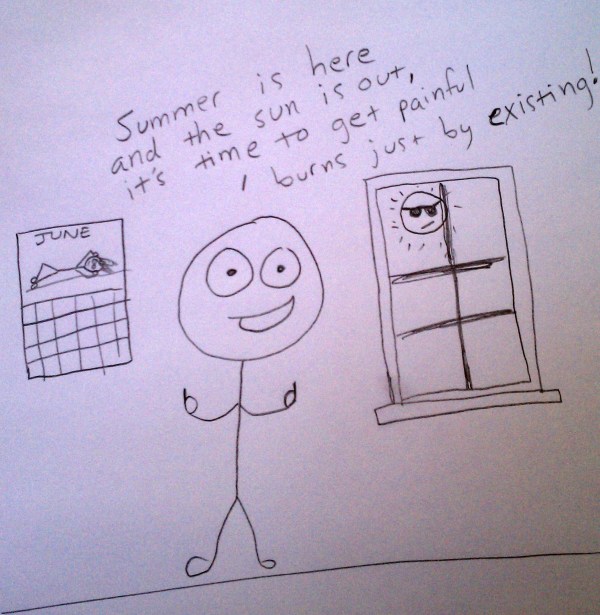 Summer is here
and the sun is out,
it's time to get painful
burns just by existing!
JUNE